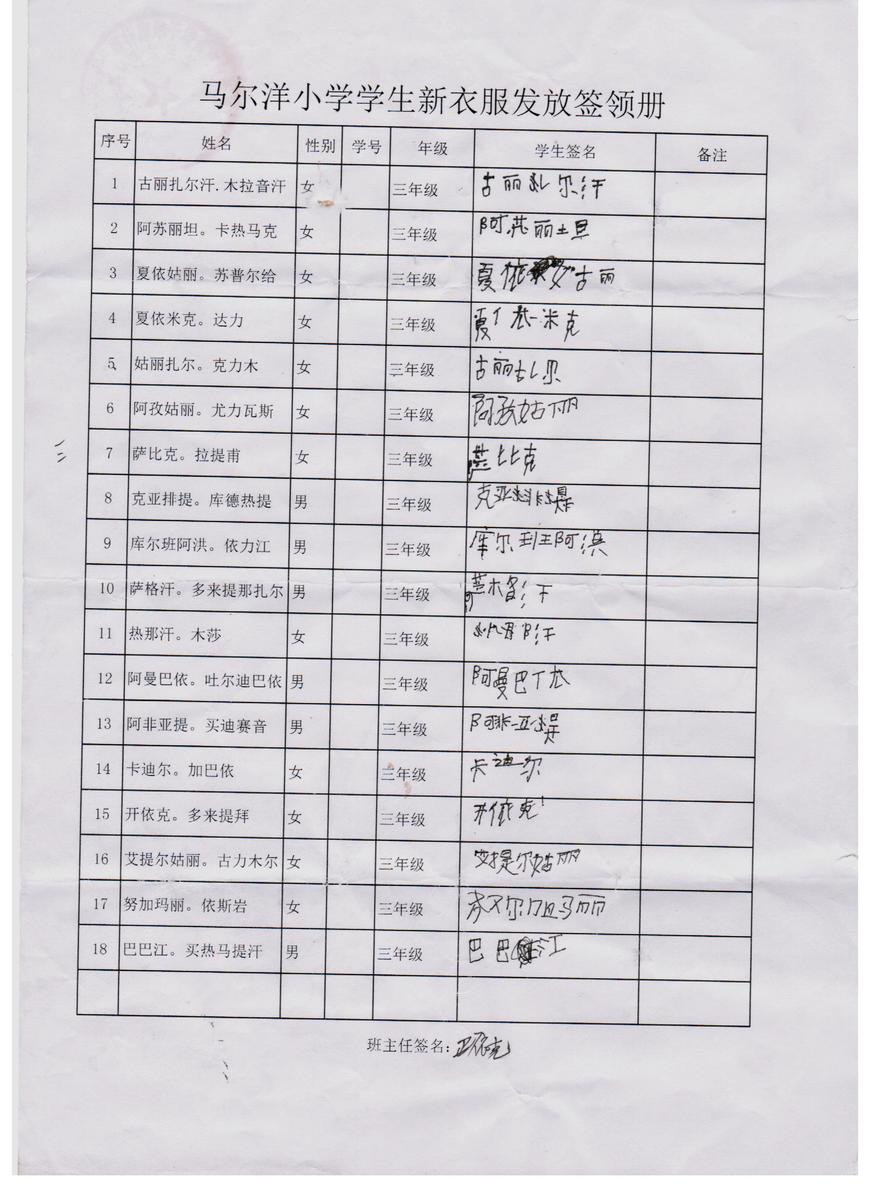 马尔洋小学学生新衣服发放签领册
序号 姓名 性别 学号 年级 学生签名 备注
1 古丽扎尔汗.木拉音汗 女 三年级 古丽扎尔汗
2 阿苏丽坦。卡热马克 女 三年级 阿苏丽土旦
3 夏依姑丽。苏普尔给 女 三年级 夏依古丽
4 夏依米克。达力 女 三年级 夏依米克
5 姑丽扎尔。克力木 女 三年级 古丽扎尔
6 阿孜姑丽。尤力瓦斯 女 三年级 阿孜姑丽
7 萨比克。拉提甫 女 三年级 比克
8 克亚排提。库德热提 男 三年级 克亚
9 库尔班阿洪。依力江 男 三年级 库尔班阿洪
10 萨格汗。多来提那扎尔 男 三年级
11 热那汗。木莎 女 三年级
12 阿曼巴依。吐尔迪巴依 男 三年级 阿曼巴依
13 阿非亚提。买迪赛音 男 三年级 阿非亚提
14 卡迪尔。加巴依 女 三年级 卡迪尔
15 开依克。多来提拜 女 三年级 开依克
16 艾提尔姑丽。古力木尔 女 三年级 艾提尔姑丽
17 努加玛丽。依斯岩 女 三年级
18 巴巴江。买热马提汗 男 三年级 巴巴江
班主任签名: